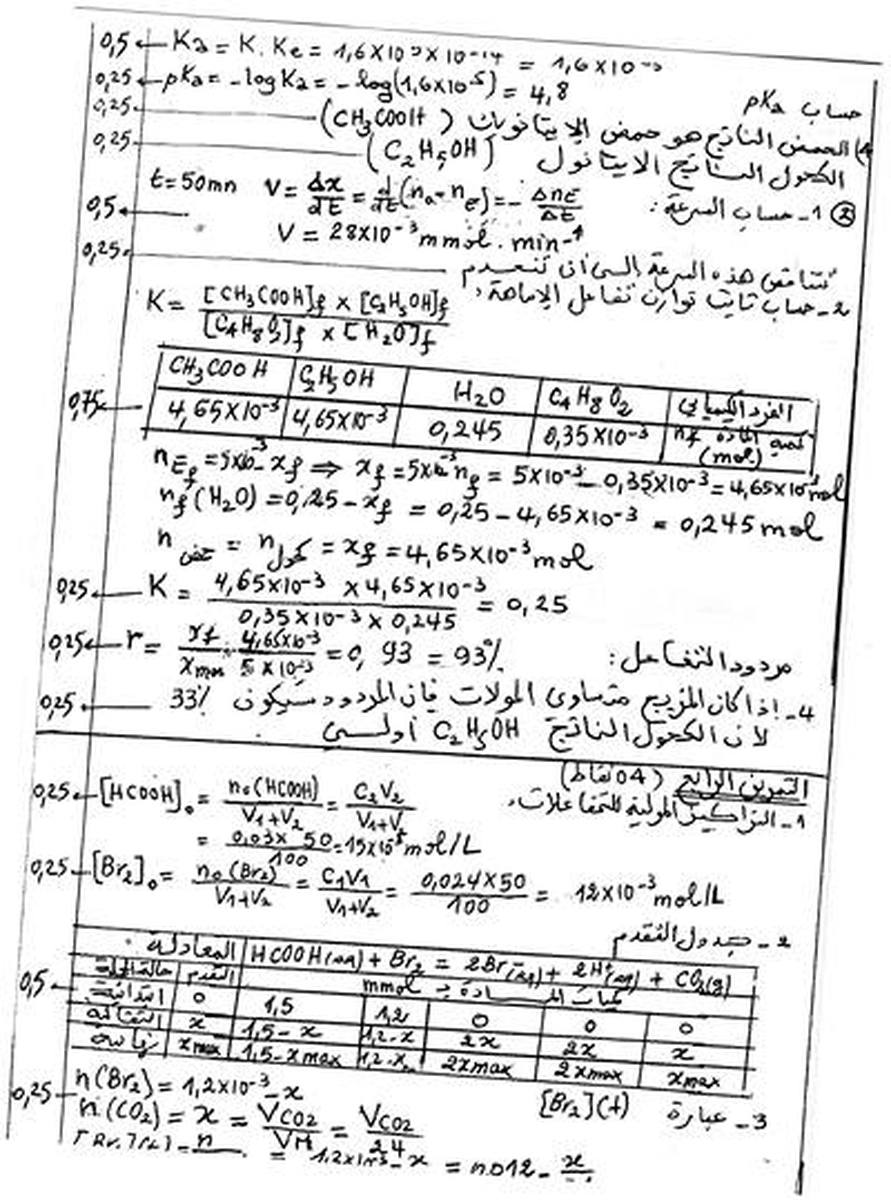 0,5 ← Ka = K. Ke = 1,6×10 × 10-14 = 1,6×10
حساب pKa
0,25 ← pKa = -log Ka = -log(1,6×10-5) = 4,8
0,25 (CH3COOH) 4) الحمض الناتج هو حمض الإيتانويك
0,25 (C2H5OH) الكحول الناتج الايتانول
② 1- حساب السرعة:
t=50mn V = Δx/dt = d/dt(n0 - nE) = - ΔnE/Δt
0,5 ← V = 28×10-3 mmol . min-1
0,25 تتناقص هذه السرعة إلى أن تنعدم
2- حساب ثابت توازن تفاعل الإماهة.
K = [CH3COOH]f × [C2H5OH]f / [C4H8O2]f × [H2O]f
CH3COOH C2H5OH H2O C4H8O2 الفرد الكيميائي
0,75 ← 4,65×10-3 4,65×10-3 0,245 0,35×10-3 كمية المادة nf (mol)
nEf = 5×10-3 - xf ⇒ xf = 5×10-3 - nf = 5×10-3 - 0,35×10-3 = 4,65×10-3 mol
nf(H2O) = 0,25 - xf = 0,25 - 4,65×10-3 = 0,245 mol
n حمض = n كحول = xf = 4,65×10-3 mol
0,25 ← K = 4,65×10-3 × 4,65×10-3 / 0,35×10-3 × 0,245 = 0,25
مردود التفاعل:
0,25 ← r = xf / xmax = 4,65×10-3 / 5×10-3 = 0,93 = 93%
4- إذا كان المزيج متساوي المولات فإن المردود سيكون 33%
0,25 ←
لأن الكحول الناتج C2H5OH أولي
التمرين الرابع (04 نقاط)
1- التراكيز المولية للتفاعلات.
0,25 ← [HCOOH]0 = n0(HCOOH) / V1+V2 = C2V2 / V1+V
= 0,03× 50 / 100 = 15×10-3 mol/L
0,25 ← [Br2]0 = n0(Br2) / V1+V2 = C1V1 / V1+V2 = 0,024×50 / 100 = 12×10-3 mol/L
2- جدول التقدم
المعادلة HCOOH(aq) + Br2 = 2Br-(aq) + 2H+(aq) + CO2(g)
التقدم كميات المادة بـ mmol
0,5 ← ابتدائية 0 1,5 1,2 0 0 0
x 1,5-x 1,2-x 2x 2x x
xmax 1,5-xmax 1,2-x 2xmax 2xmax xmax
3- عبارة [Br2](t)
0,25 n(Br2) = 1,2×10-3 - x
n(CO2) = x = VCO2 / VM = VCO2 / 24
= 1,2×10-3 - x = 0.012 - x